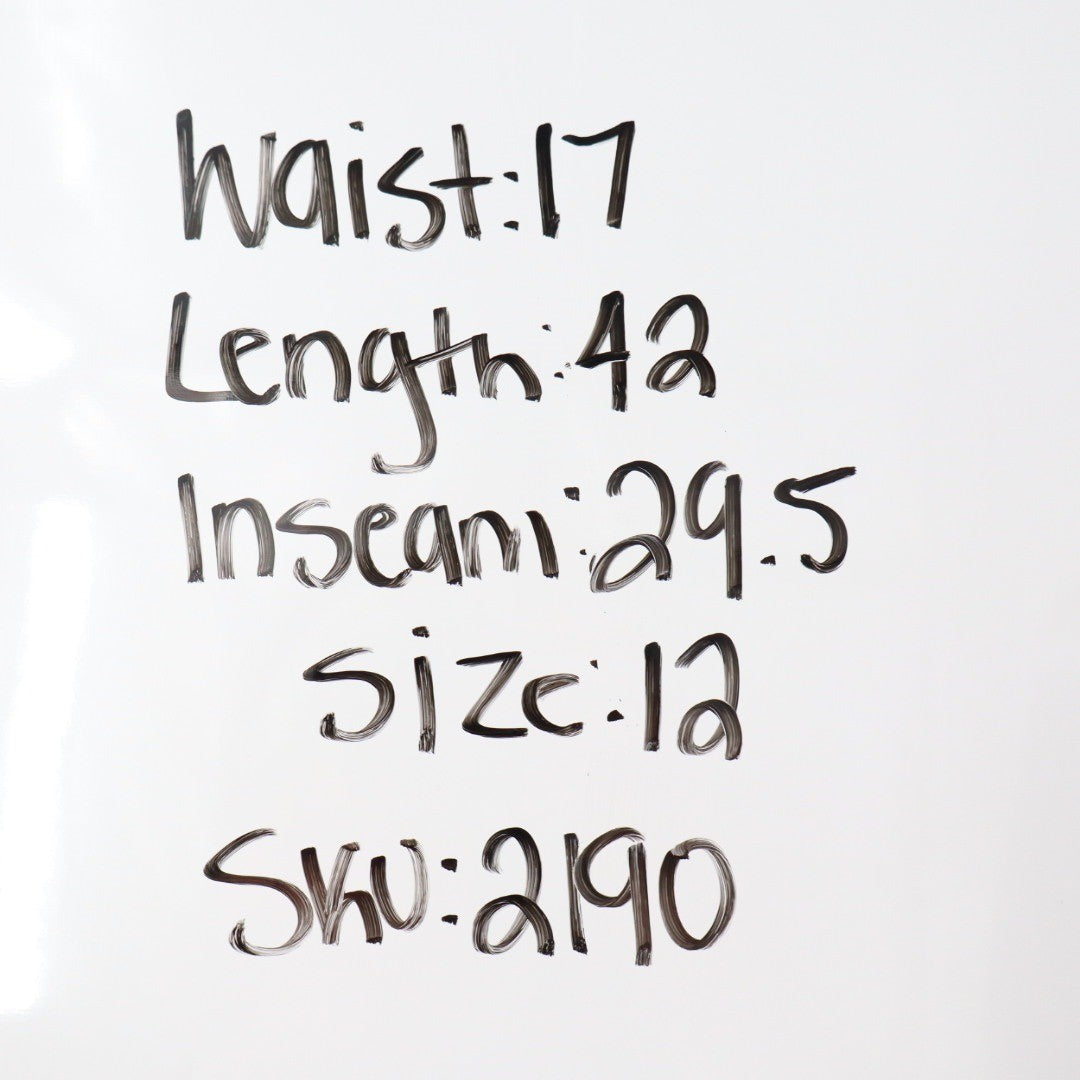 Waist:17
Length:42
Inseam:29.5
Size:12
SKU:2190